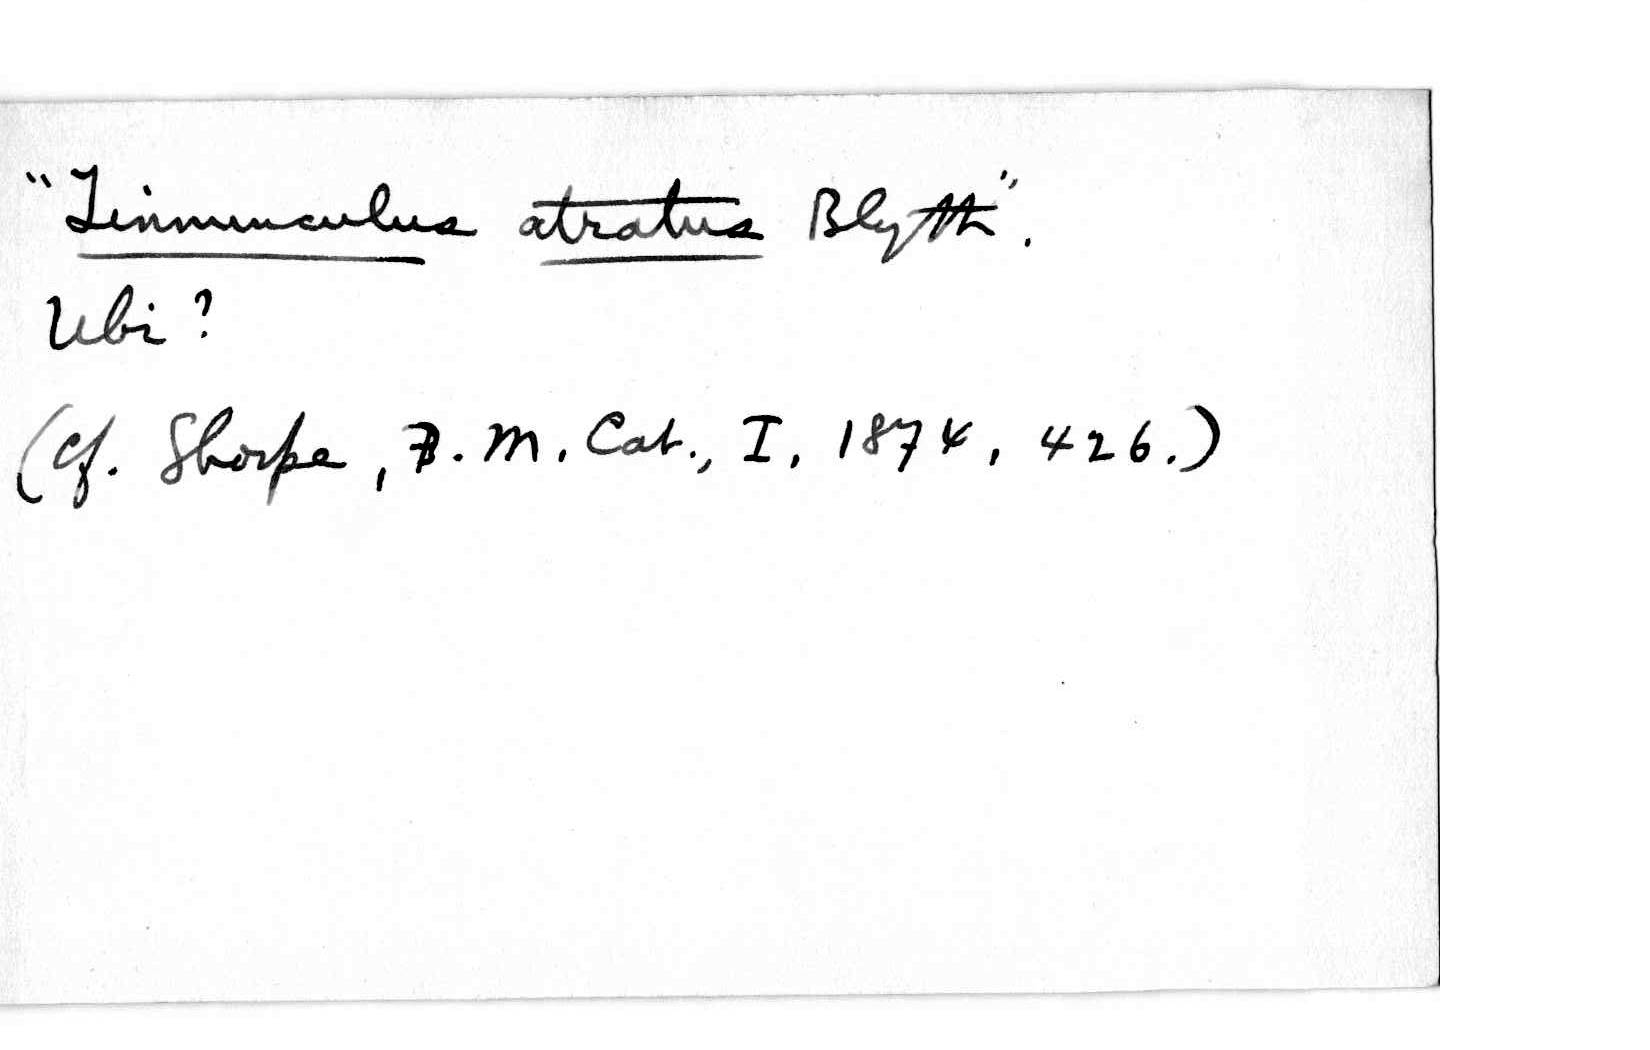 "Tinnunculus atratus Blyth".
Ubi?
(Cf. Sharpe, B. M. Cat., I, 1874, 426.)